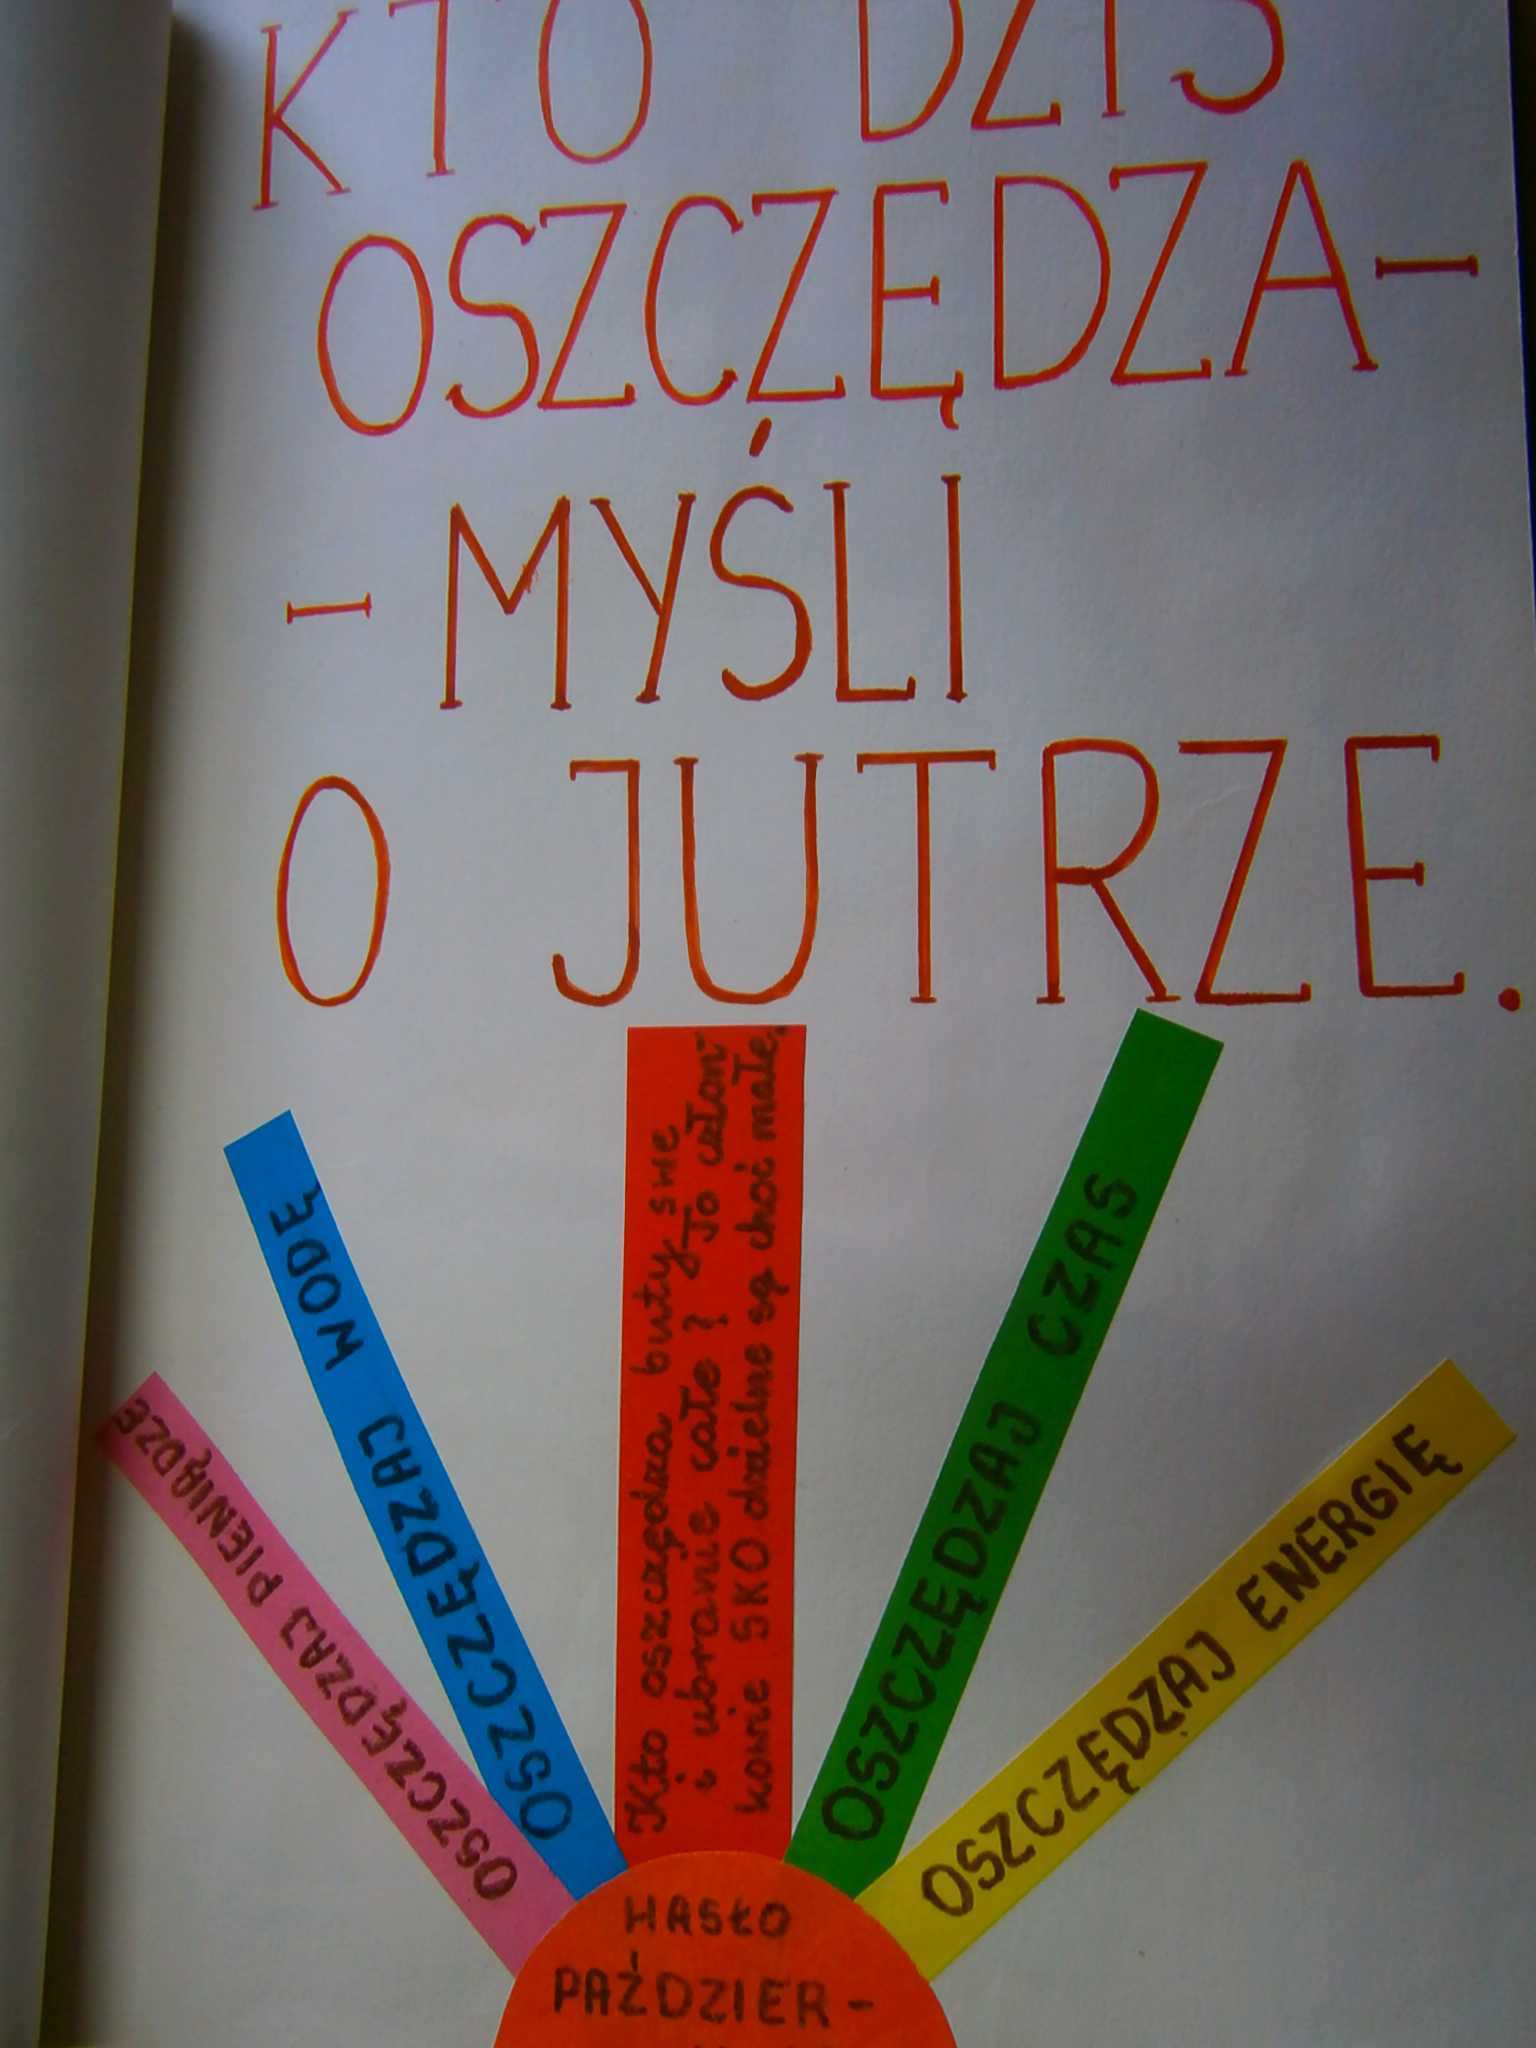 KTO DZIŚ
OSZCZĘDZA-
-MYŚLI
O JUTRZE.
OSZCZĘDZAJ PIENIĄDZE
OSZCZĘDZAJ WODĘ
Kto oszczędza buty swe
i ubranie całe? To człon-
kowie SKO dzielne są choć małe.
OSZCZĘDZAJ CZAS
OSZCZĘDZAJ ENERGIĘ
HASŁO
PAŹDZIER-